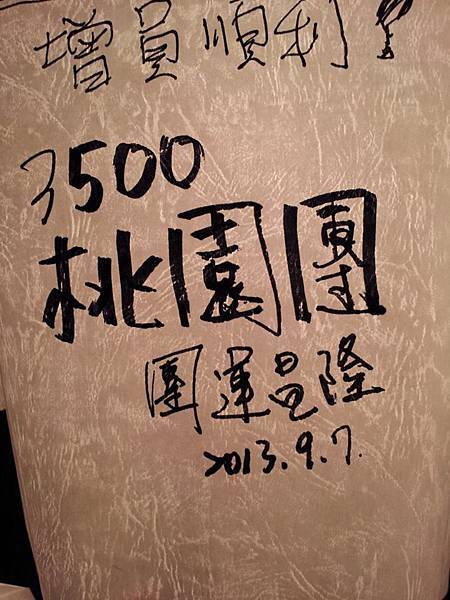 增員順利!
3500
桃園團
團運昌隆
2013.9.7.